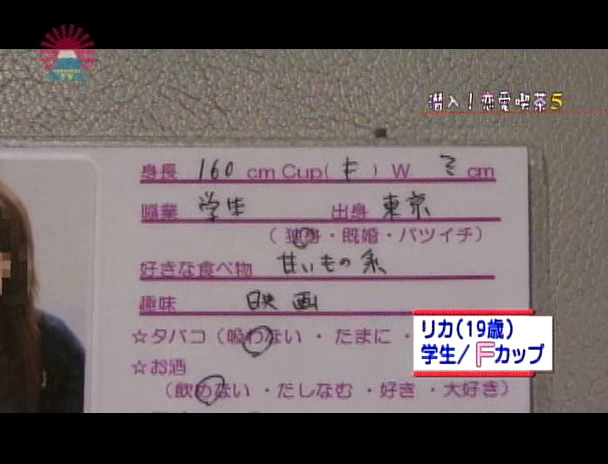 潜入！恋愛喫茶5
身長 160 cm Cup( F ) W cm
職業 学生 出身 東京
(独身・既婚・バツイチ)
好きな食べ物 甘いもの系
趣味 映画
☆タバコ (吸わない・たまに・
リカ(19歳)
学生/Fカップ
☆お酒
(飲めない・だしなむ・好き・大好き)